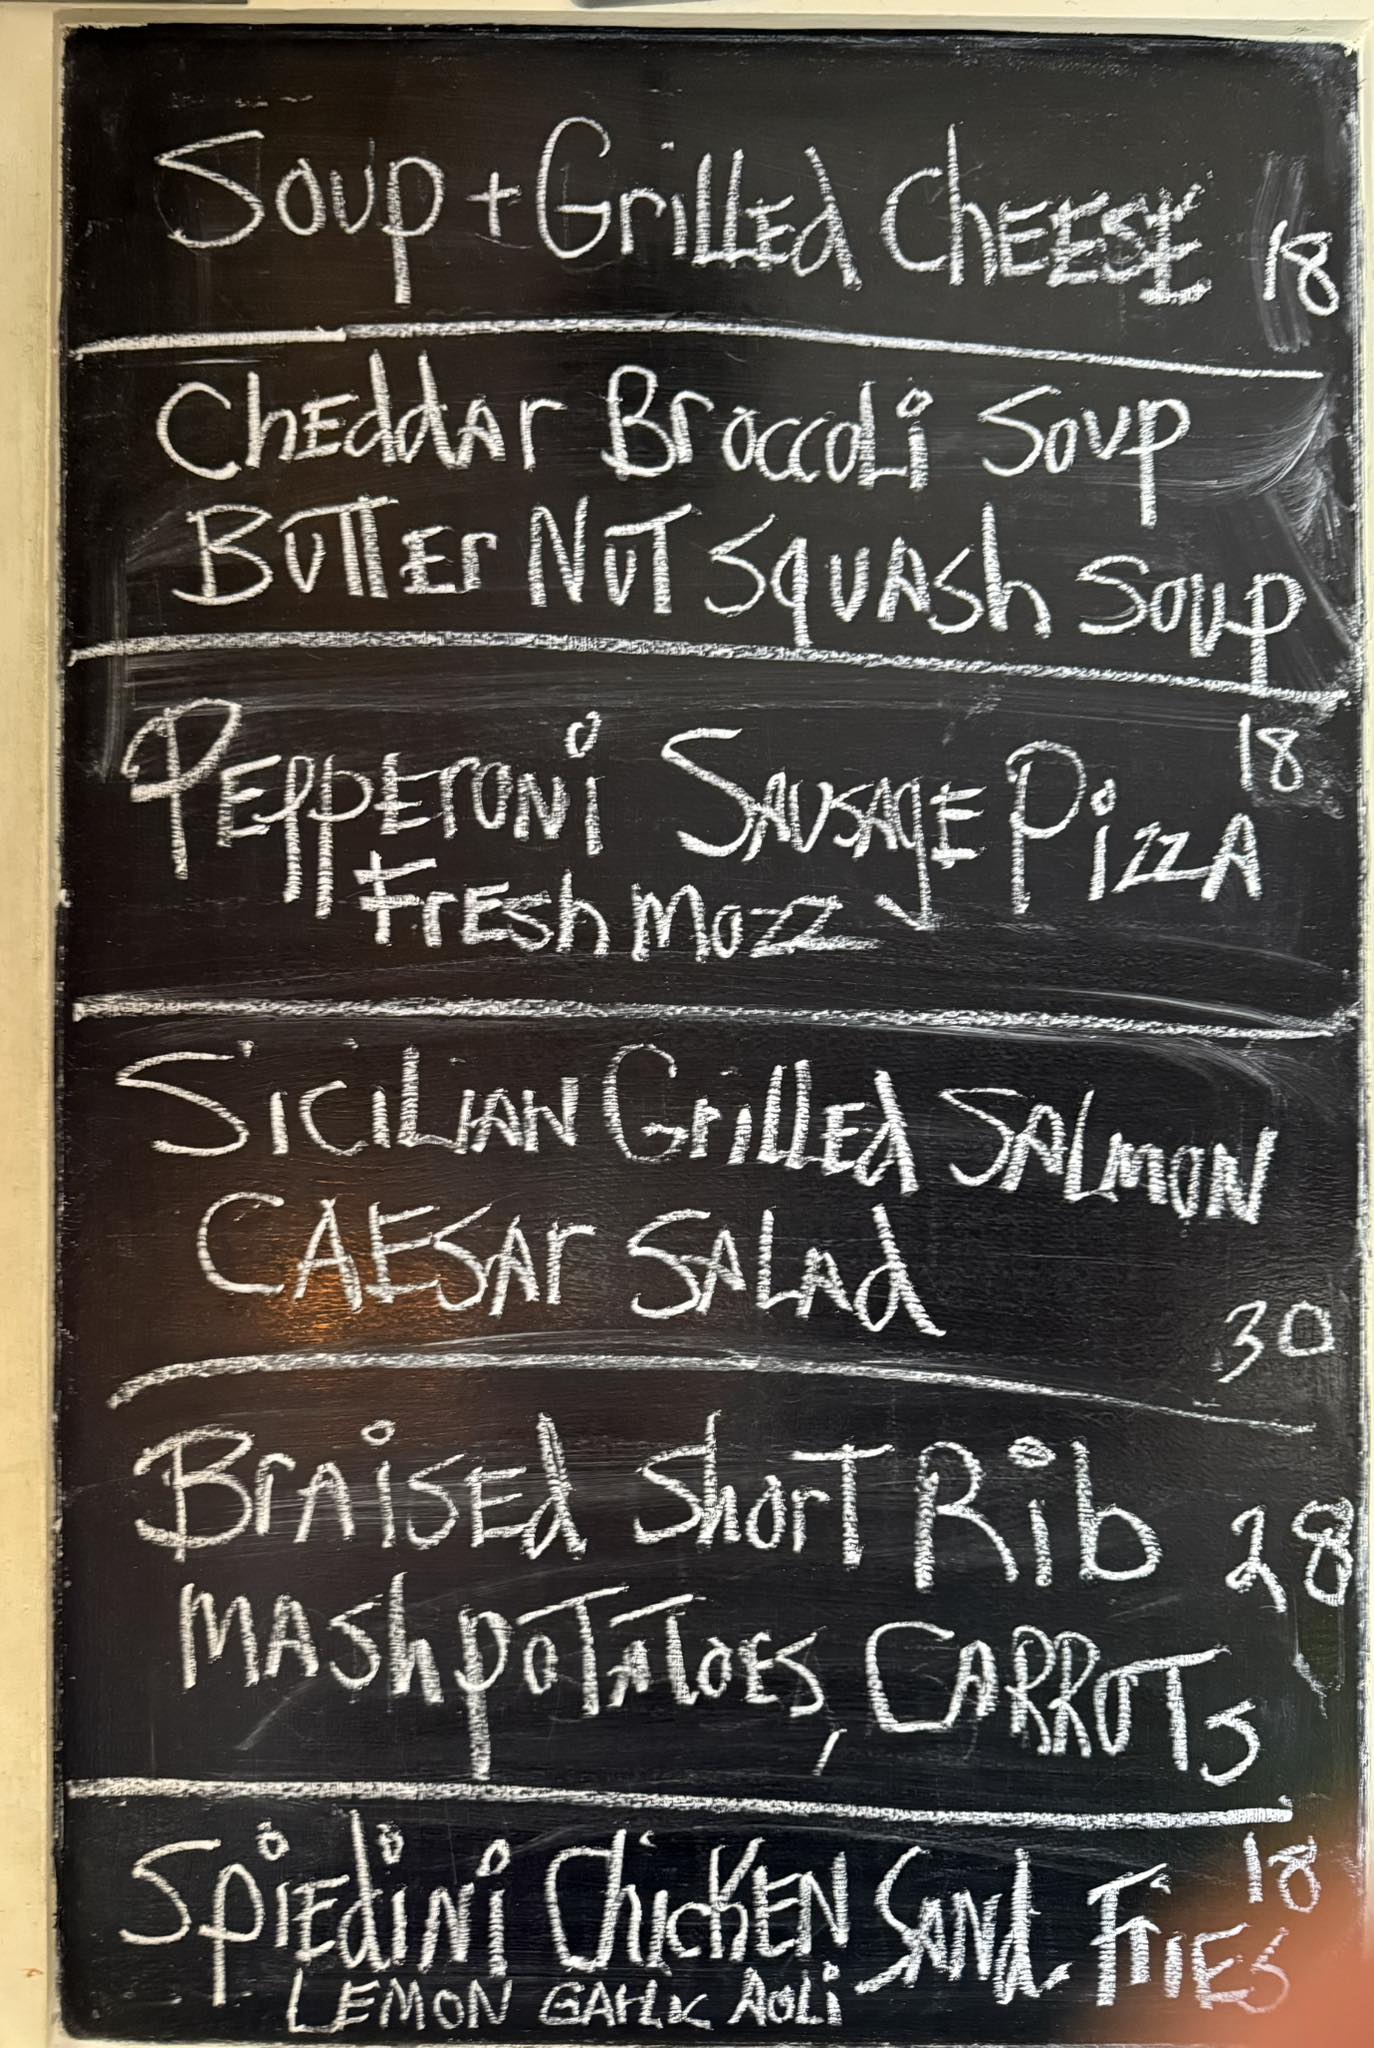 Soup + Grilled Cheese 18
Cheddar Broccoli Soup
Butter Nut Squash Soup
18
Pepperoni Sausage Pizza
Fresh Mozz
Sicilian Grilled Salmon
Caesar Salad
30
Braised Short Rib 28
Mash Potatoes, Carrots
18
Spiedini Chicken Sand Fries
Lemon Garlic Aoli